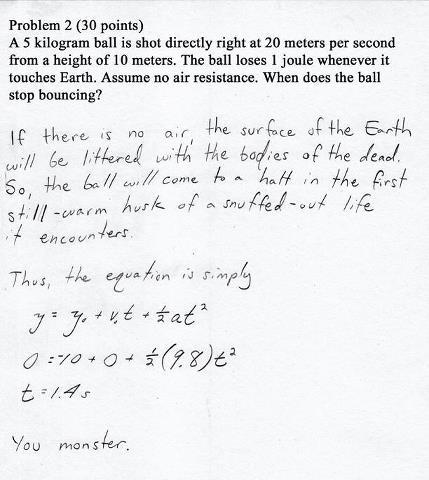 Problem 2 (30 points)
A 5 kilogram ball is shot directly right at 20 meters per second
from a height of 10 meters. The ball loses 1 joule whenever it
touches Earth. Assume no air resistance. When does the ball
stop bouncing?
If there is no air, the surface of the Earth
will be littered with the bodies of the dead.
So, the ball will come to a halt in the first
still-warm husk of a snuffed-out life
it encounters.
Thus, the equation is simply
y = y₀ + v₀t + ½at²
0 = -10 + 0 + ½(9.8)t²
t = 1.4s
You monster.